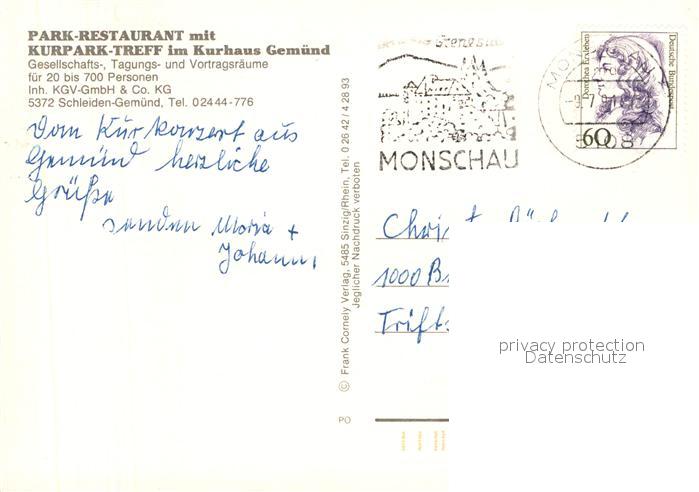 PARK-RESTAURANT mit
KURPARK-TREFF im Kurhaus Gemünd
Gesellschafts-, Tagungs- und Vortragsräume
für 20 bis 700 Personen
Inh. KGV-GmbH & Co. KG
5372 Schleiden-Gemünd, Tel. 02444-776
Vom Kurkonzert aus
Gemünd herzliche
Grüße
senden Maria +
Johann
© Frank Cornely Verlag, 5485 Sinzig/Rhein, Tel. 0 26 42 / 4 28 93
Jeglicher Nachdruck verboten
PO
MONSCHAU
Dorothea Erxleben
Deutsche Bundespost
60
1000 B
Trift
privacy protection
Datenschutz